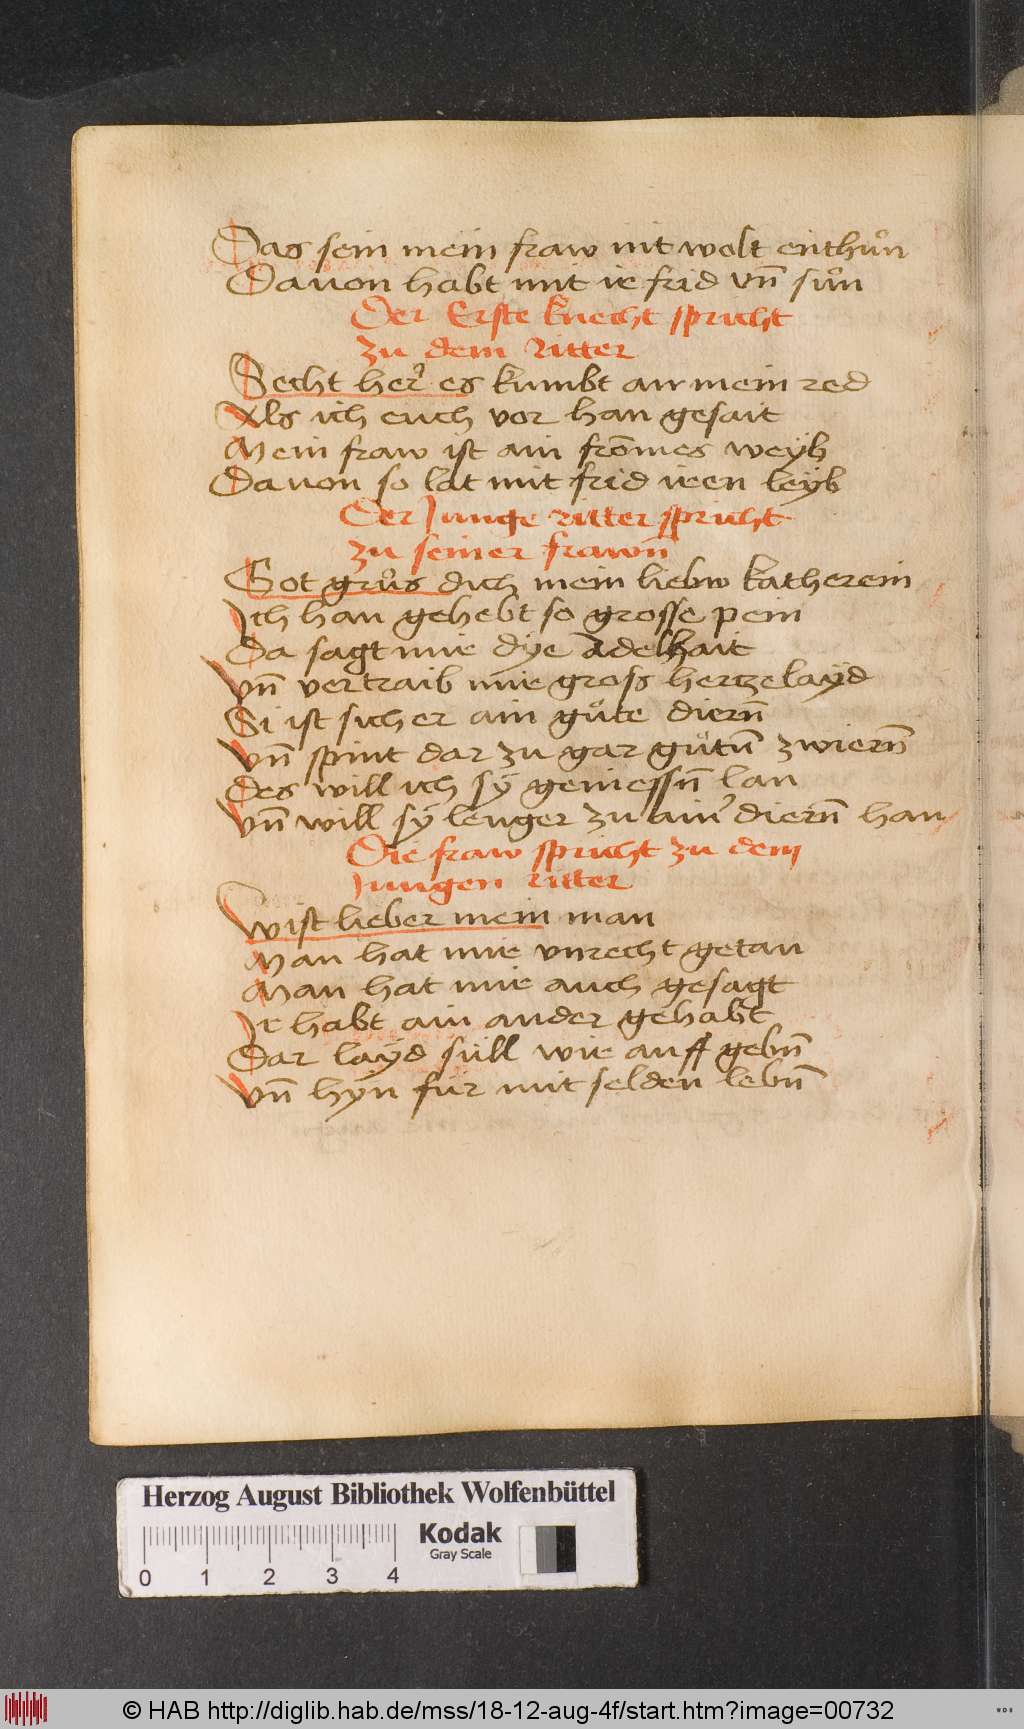 Das sein mein fraw nit wolt enthuͦn
Dauon habt mit ir frid vn̄ suͦn
Der Erste knecht spricht
zu dem Ritter
Secht her' es kumbt an mein red
Als ich euch vor han gesait
Mein fraw ist ain from̄es weÿb
Dauon so lat mit frid iren leÿb
Der Junge ritter spricht
zu seiner frawn̄
Got gruͦs dich mein liebw katherein
Ich han gehebt so grosse pein
Da sagt mir dÿe Adelhait
Vn̄ vertraib mir gross hertzelaÿd
Si ist sicher ain guͦte diern̄
Vn̄ spint dar zu gar guͦtn̄ zwiern̄
Des will ich sÿ geniessn̄ lan
Vn̄ will sÿ lenger zu ain' diern̄ han
Die fraw spricht zu dem
Jungen ritter
Wist lieber mein man
Man hat mir vnrecht getan
Man hat mir auch gesagt
Ir habt ain ander gehabt
Dar laÿd süll wir auff gebn̄
Vn̄ hÿn für mit selden lebn̄
Herzog August Bibliothek Wolfenbüttel
Kodak
Gray Scale
0 1 2 3 4
© HAB http://diglib.hab.de/mss/18-12-aug-4f/start.htm?image=00732